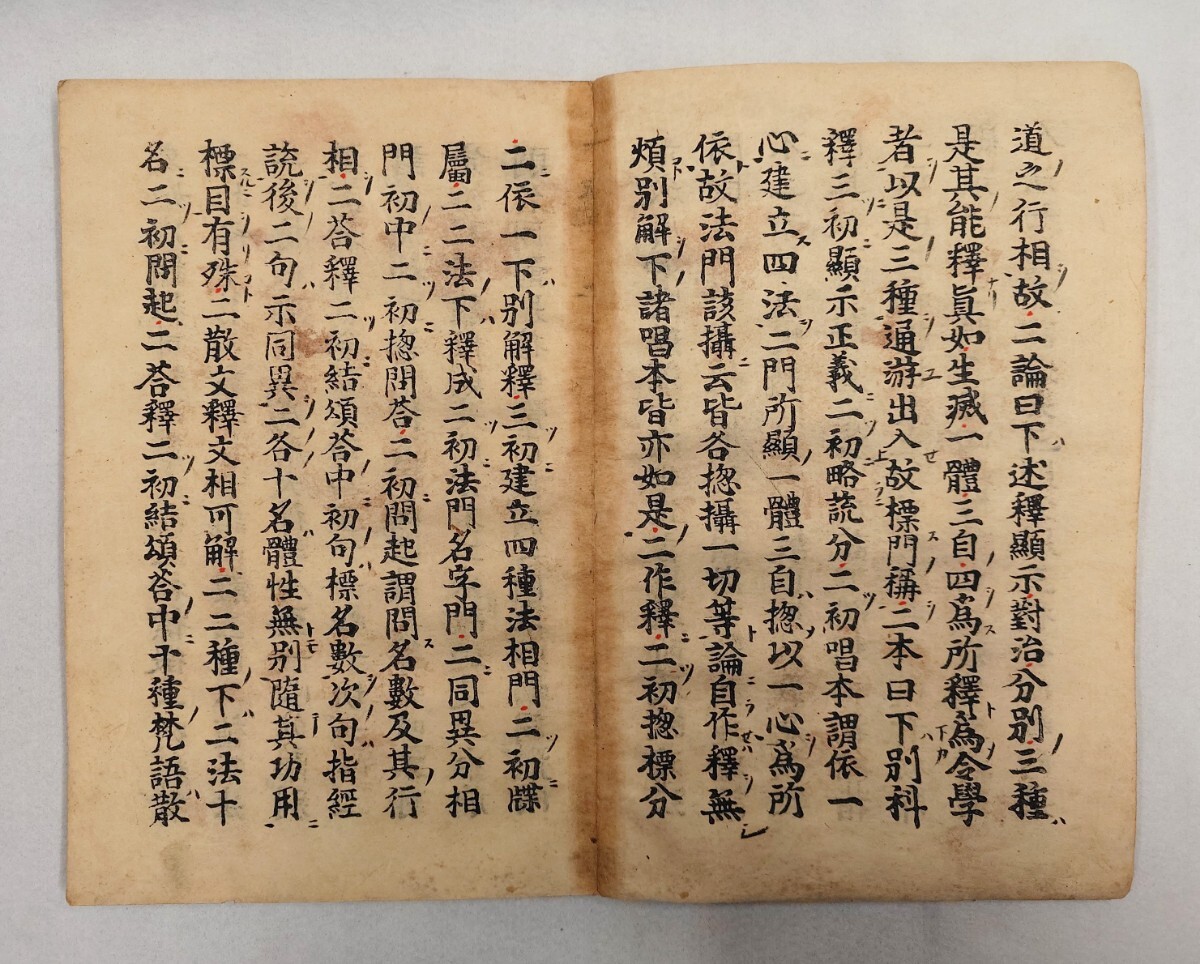 道之行相故二論曰下述釋顯示對治分別三種
是其能釋眞如生滅一體三自四爲所釋爲令學
者以是三種通游出入故標門稱二本曰下別科
釋三初顯示正義二初略䟽分二初唱本謂依一
心建立四法二門所顯一體三自揔以一心爲所
依故法門該攝云皆各揔攝一切等論自作釋無
煩別解下諸唱本皆亦如是二作釋二初揔標分
二依一下別解釋三初建立四種法相門二初牒
屬二二法下釋成二初法門名字門二同異分相
門初中二初揔問荅二初問起謂問名數及其行
相二荅釋二初結頌荅中初句標名數次句指經
說後二句示同異二各十名體性無別隨其功用
標目有殊二散文釋文相可解二二種下二法十
名二初問起二荅釋二初結頌荅中十種梵語散